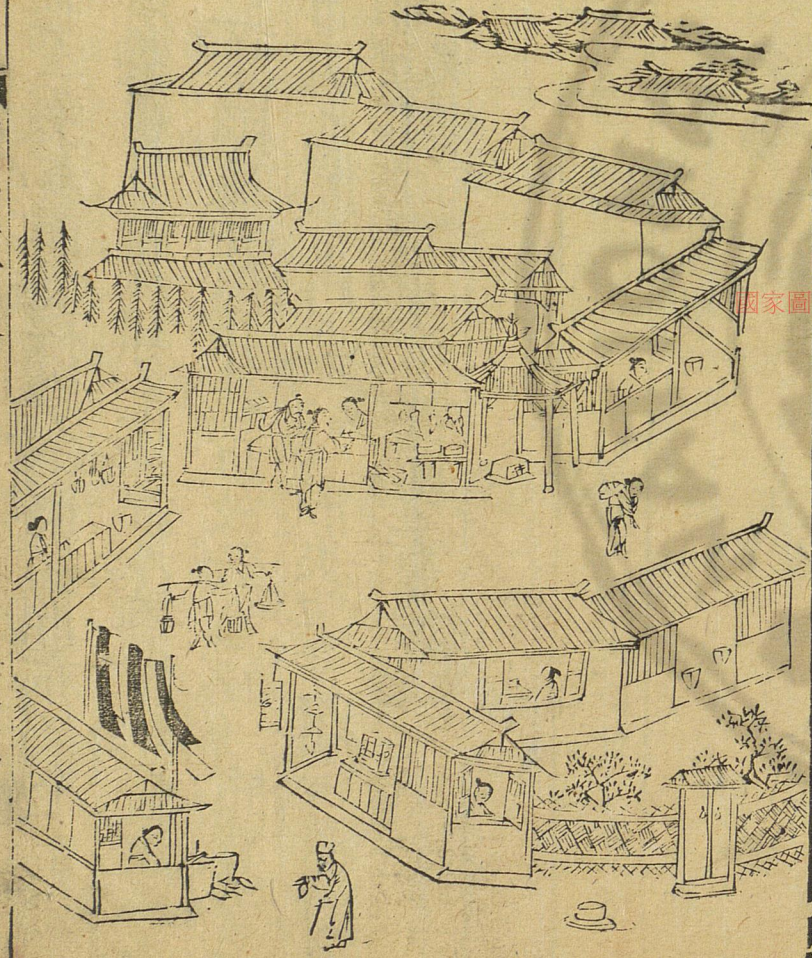 國家圖